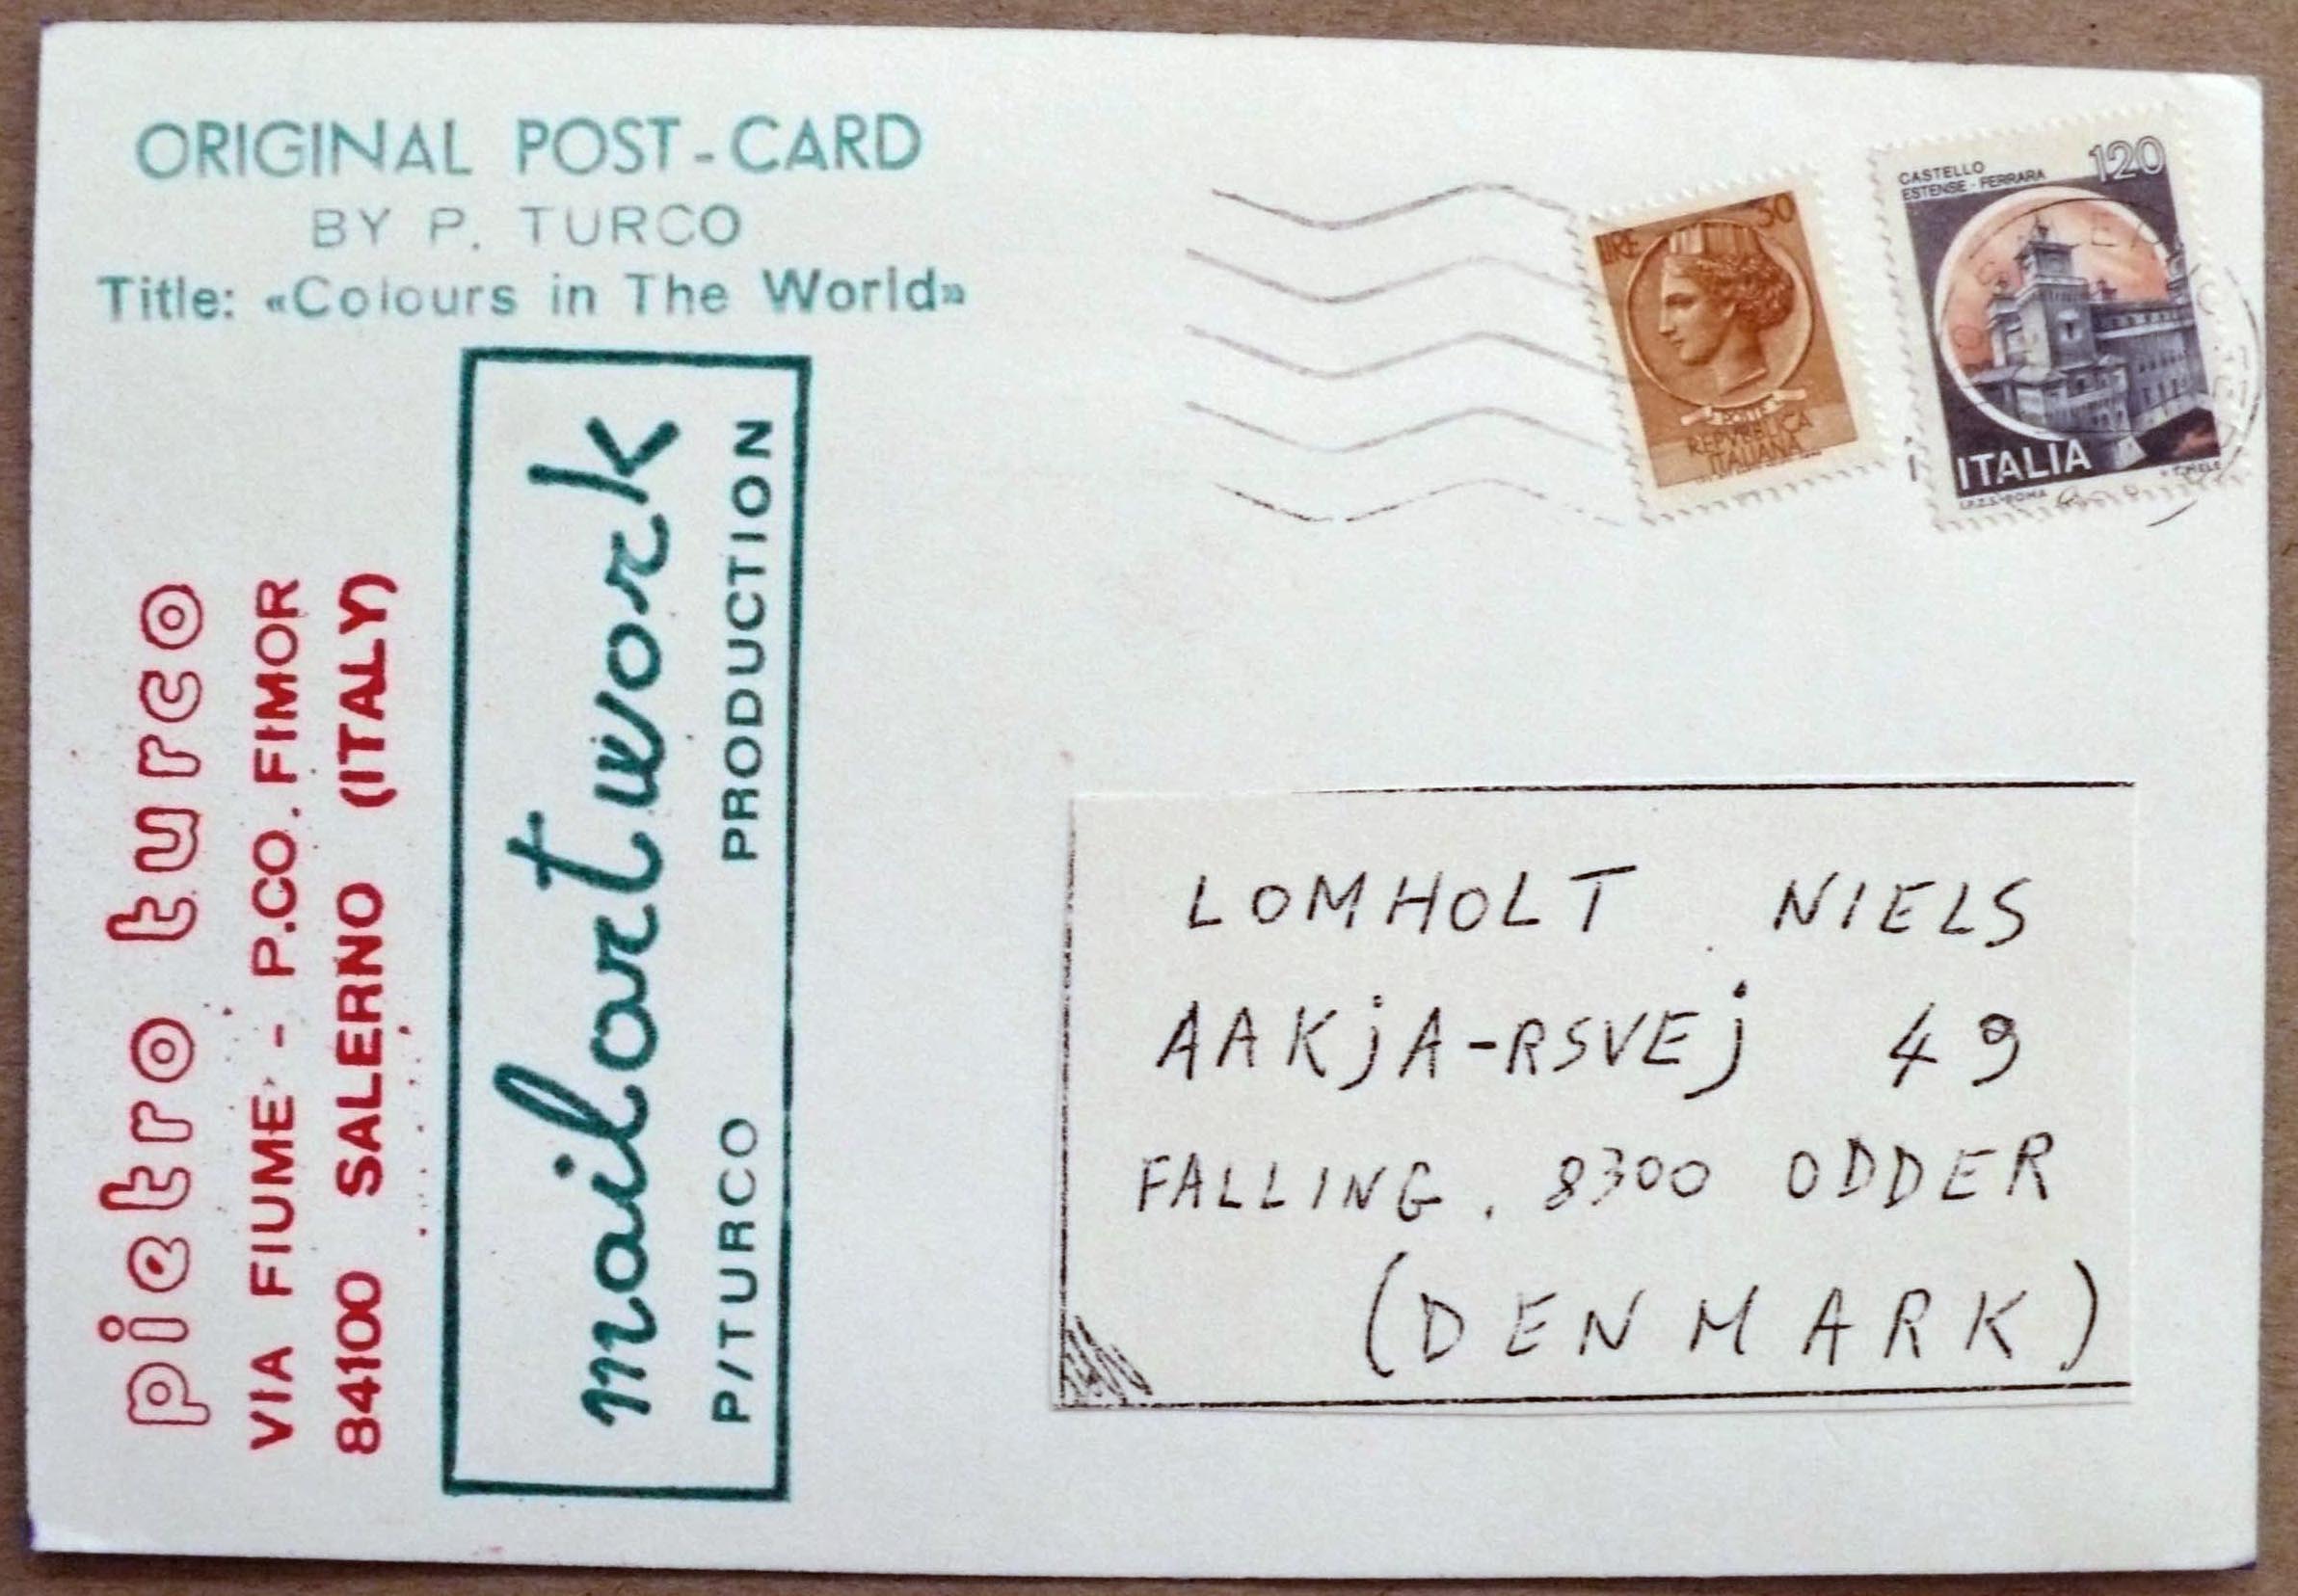 ORIGINAL POST-CARD
BY P. TURCO
Title: «Colours in The World»
pietro turco
VIA FIUME - P.CO. FIMOR
84100 SALERNO (ITALY)
mailartwork
P/TURCO PRODUCTION
LIRE 50
POSTE
REPVBBLICA
ITALIANA
CASTELLO 120
ESTENSE - FERRARA
ITALIA
I.P.Z.S. - ROMA
LOMHOLT NIELS
AAKjA-RSVEj 49
FALLING. 8300 ODDER
(DENMARK)